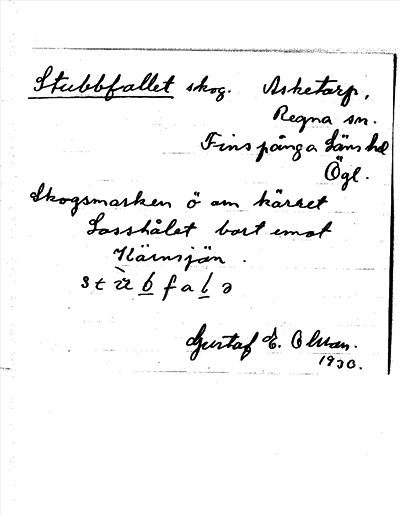 Stubbfallet skog. Asketarp,
Regna sn.
Finspånga läns hd
Ögl.
Skogsmarken ö om kärret
Losshålet bort emot
Närnsjön.
stu̇b̲fal̲ə
Gustaf E. Olsson.
1930.